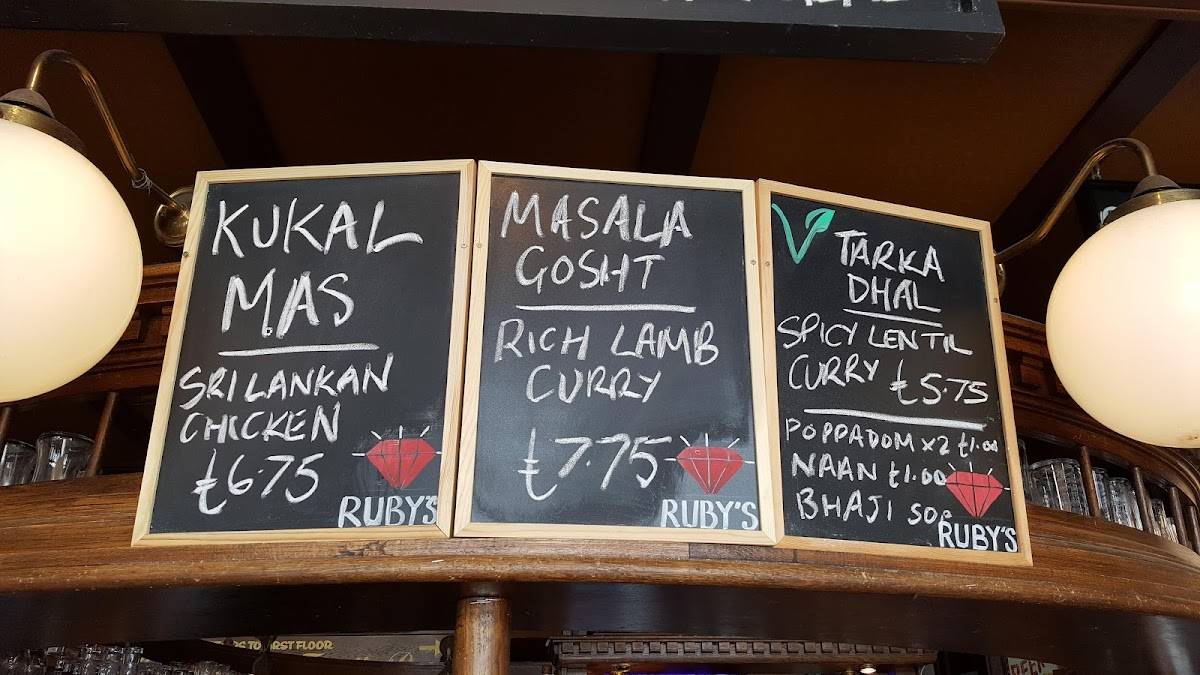 KUKAL
MAS
SRI LANKAN
CHICKEN
£6.75
RUBY'S
MASALA
GOSHT
RICH LAMB
CURRY
£7.75
RUBY'S
V TARKA
DHAL
SPICY LENTIL
CURRY £5.75
POPPADOM x2 £1.00
NAAN £1.00
BHAJI 50p
RUBY'S
TO FIRST FLOOR